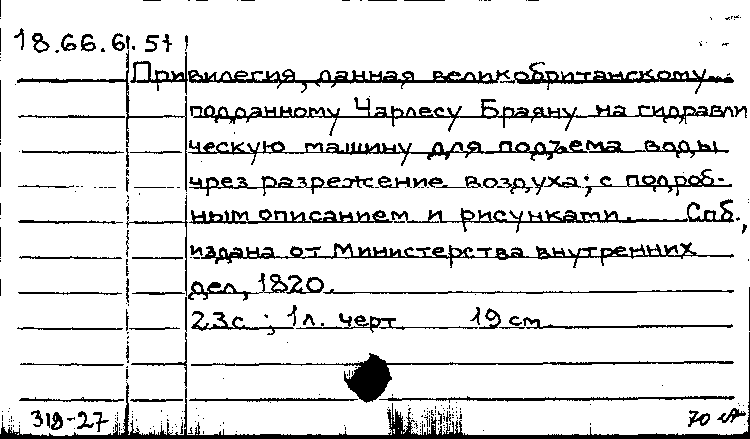 18.66.6.57
Привилегия, данная великобританскому
подданному Чарлесу Браяну на гидравли
ческую машину для подъема воды
чрез разрежение воздуха; с подроб-
ным описанием и рисунками. Спб.,
издана от Министерства внутренних
дел, 1820.
23 с.; 1 л. черт. 19 см.
319-27